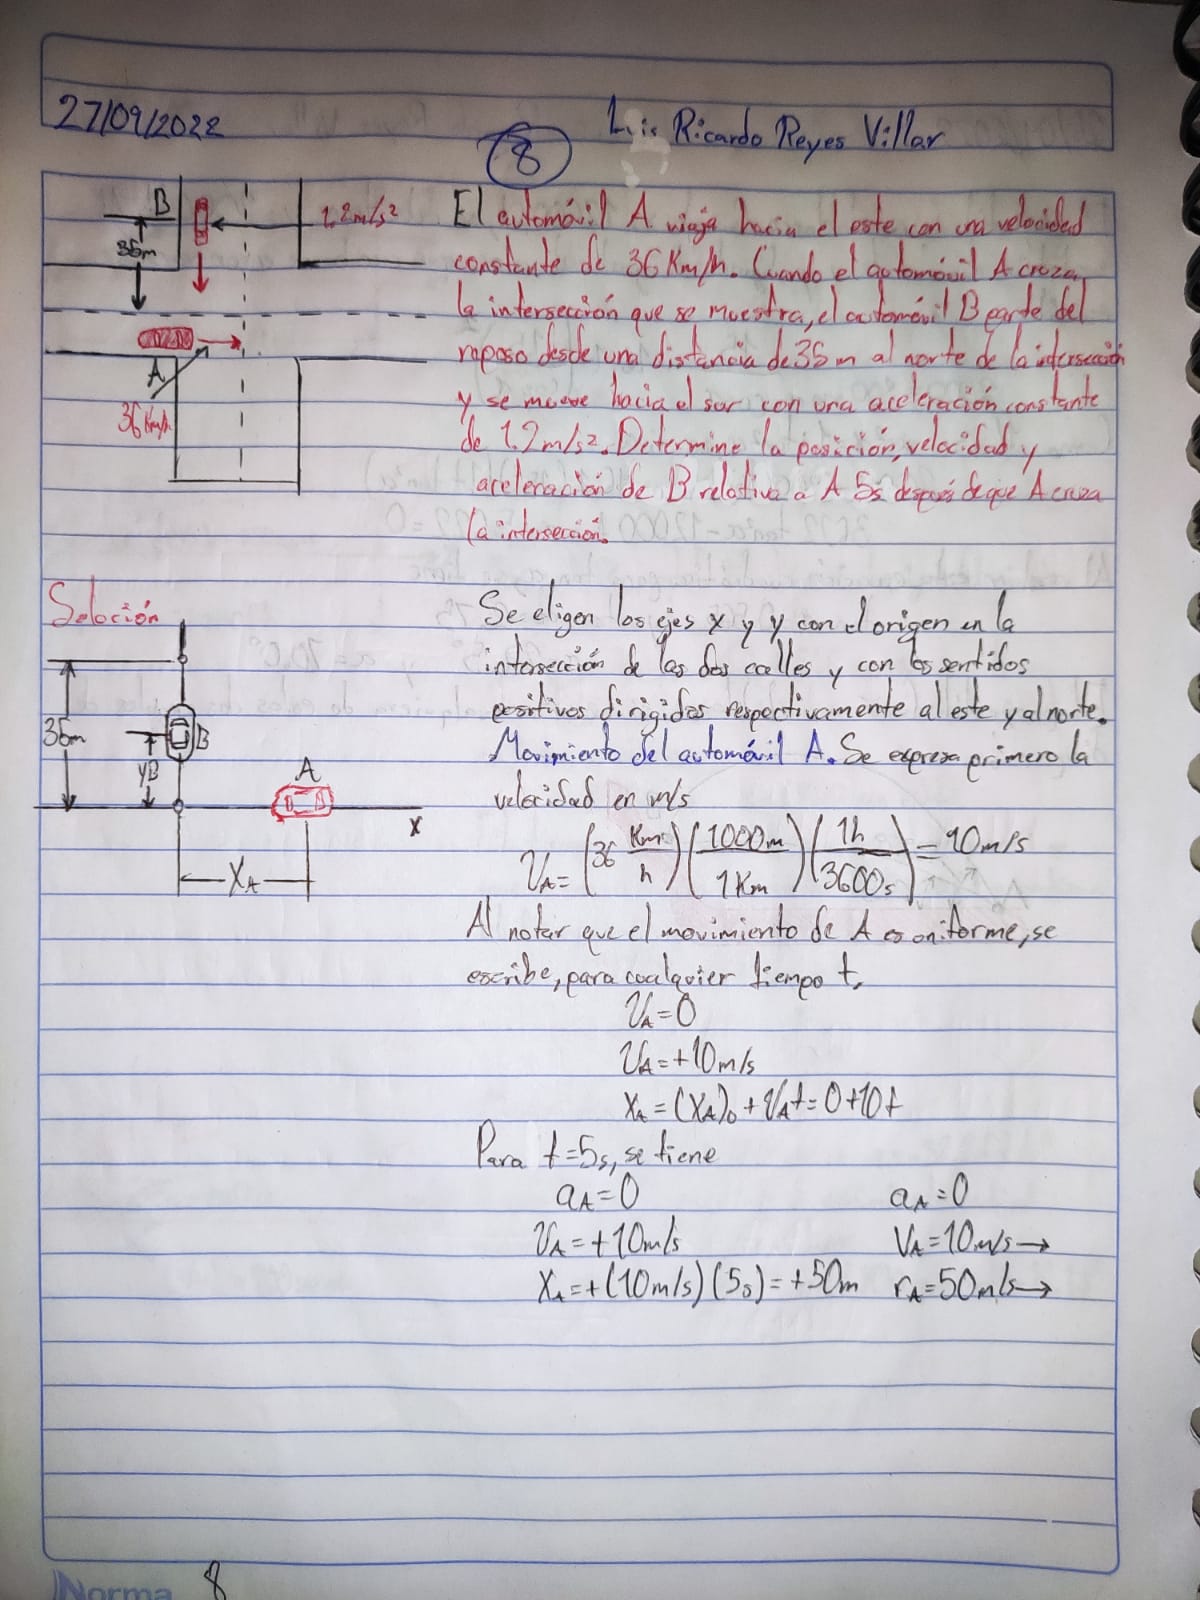 27/09/2022
Luis Ricardo Reyes Villar
8
B
1.2m/s²
36m
A
36 Km/h
El automóvil A viaja hacia el este con una velocidad
constante de 36 Km/h. Cuando el automóvil A cruza
la intersección que se muestra, el automóvil B parte del
reposo desde una distancia de 36 m al norte de la intersección
y se mueve hacia el sur con una aceleración constante
de 1.2m/s². Determine la posición, velocidad y
aceleración de B relativa a A 5s después de que A cruza
la intersección.
Solución
36m
B
yB
A
x
XA
Se eligen los ejes x y y con el origen en la
intersección de las dos calles y con los sentidos
positivos dirigidos respectivamente al este y al norte.
Movimiento del automóvil A. Se expresa primero la
velocidad en m/s
VA = (36 Km/h)(1000m/1Km)(1h/3600s) = 10m/s
Al notar que el movimiento de A es uniforme, se
escribe, para cualquier tiempo t,
VA=0
VA=+10m/s
XA=(XA)0+VAt=0+10t
Para t=5s, se tiene
aA=0 aA=0
VA=+10m/s VA=10m/s→
XA=+(10m/s)(5s)=+50m rA=50m/s→
Norma 8